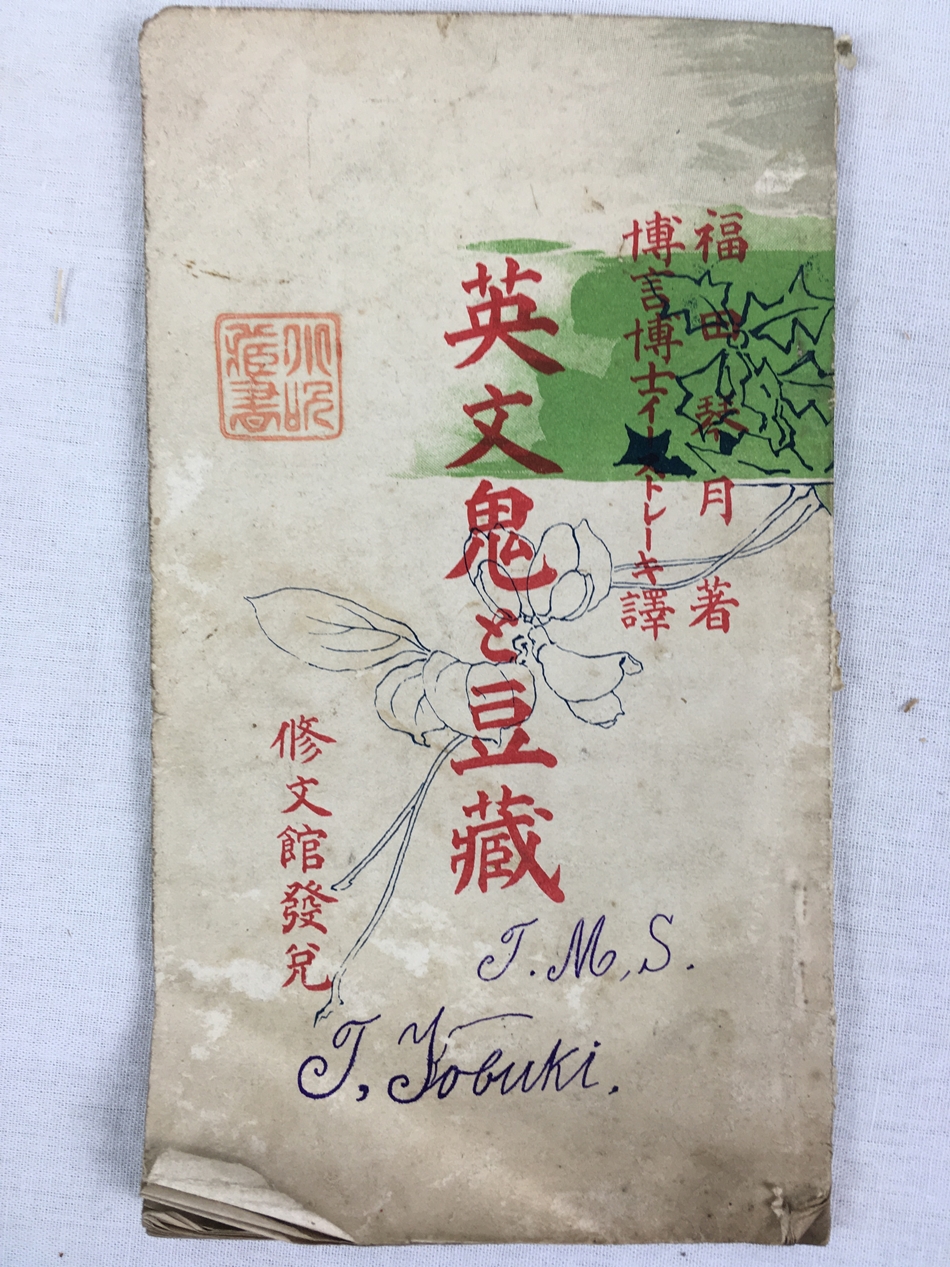 福田琴月著
博言博士イーストレーキ譯
英文鬼と豆藏
藏書
修文館發兌
T. M, S.
T, Yobuki.